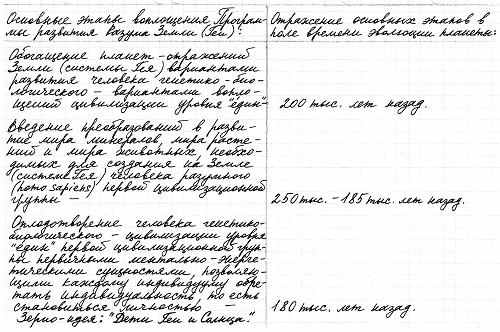 Основные этапы воплощения Програм-
мы развития Разума Земли (Геи):
Отражение основных этапов в
поле времени эволюции планеты:
Обогащение планет-отражений
Земли (системы Гея) вариантами
развития человека генетико-био-
логического - вариантами вопло-
щений цивилизации уровня "един"-
200 тыс. лет назад.
Введение преобразований в разви-
тие мира минералов, мира расте-
ний и мира животных, необхо-
димых для создания на Земле
(системе Гея) человека разумного
(homo sapiens) первой цивилизационной
группы -
250 тыс. - 185 тыс. лет назад.
Оплодотворение человека генетико-
биологического - цивилизации уровня
"един" первой цивилизационной груп-
пы первичными ментально-энерге-
тическими сущностями, позволяю-
щими каждому индивидууму обре-
тать индивидуальность, то есть
становиться личностью
Зерно-идея: "Дети Геи и Солнца".
180 тыс. лет назад.